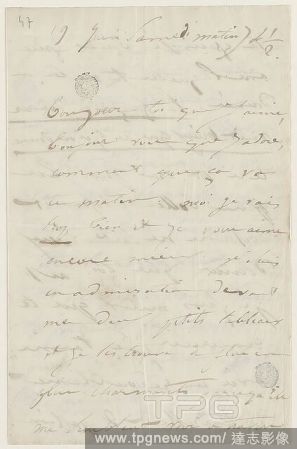 47
9 juin Samedi matin
Bonjour toi que j'aime,
bonjour vous que j'adore,
comment que ça va
ce matin moi je vais
très bien et je vous aime
encore mieux je suis
en admiration devant
mes deux petits tableaux
et je les trouve de plus en
plus charmants
TPG
www.tpgnews.com/達志影像